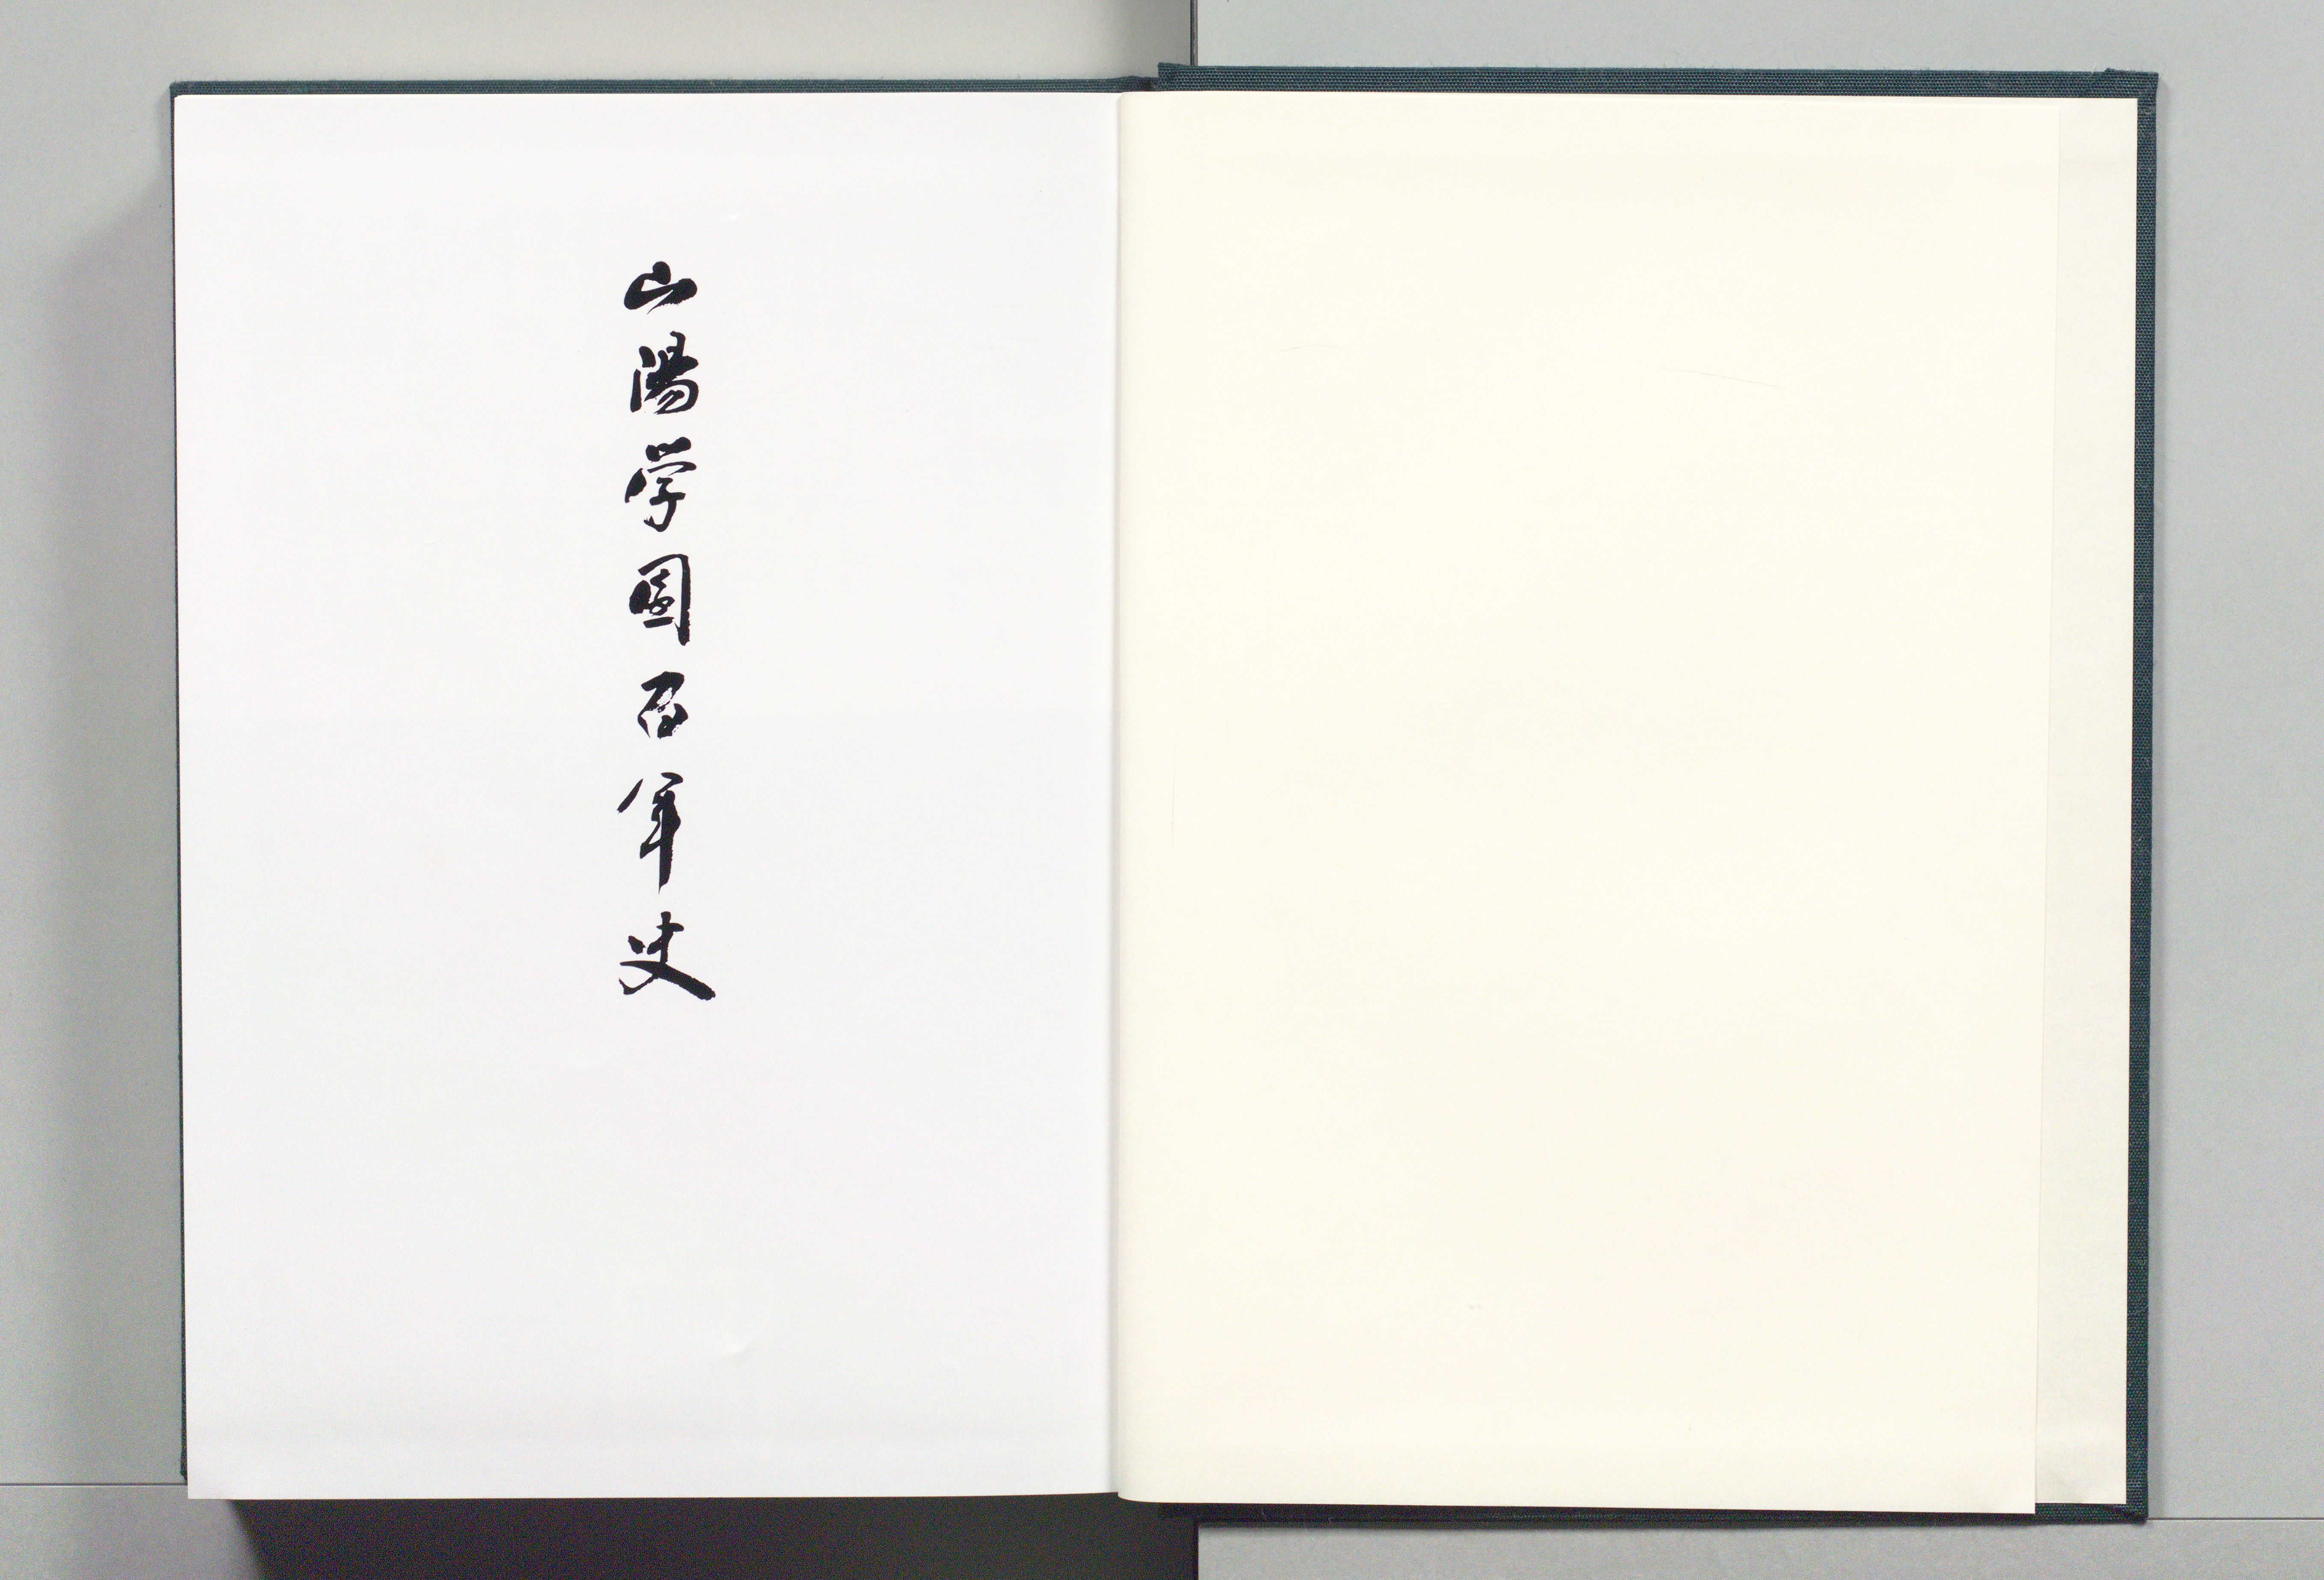 山陽学園百年史